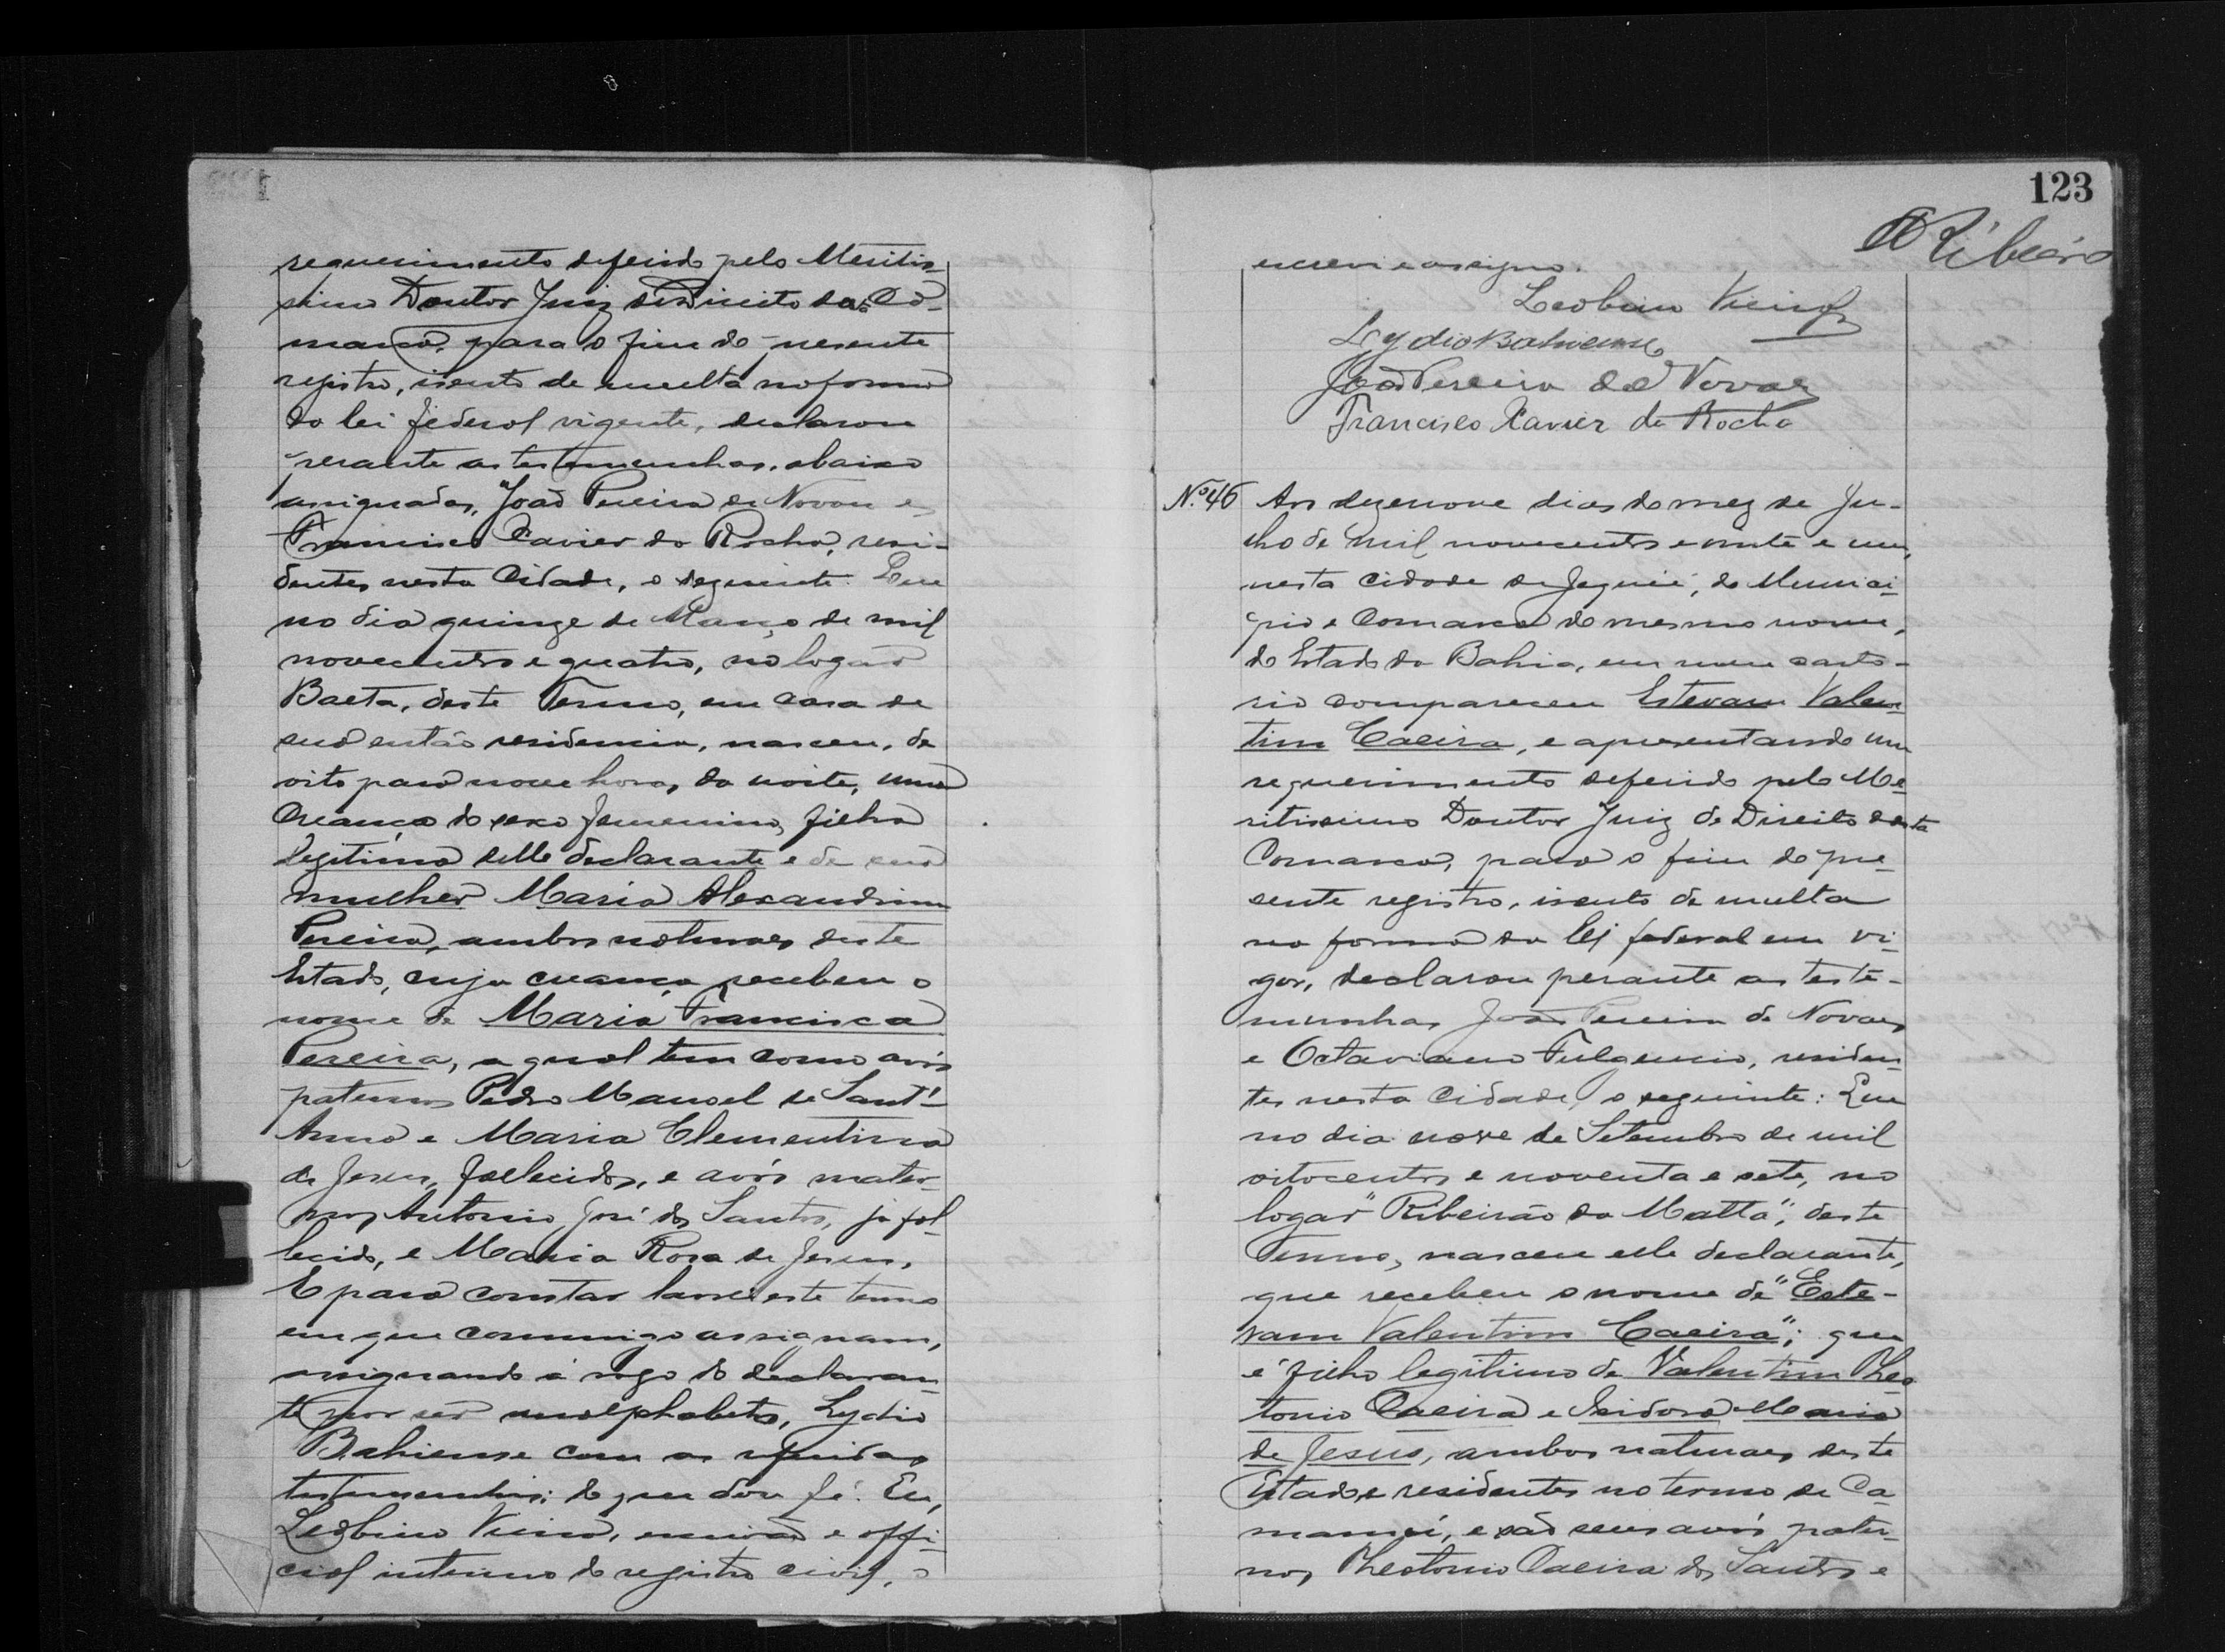 requerimento deferido pelo Meritis-
simo Doutor Juiz de Direito da Co-
marca, para o fim do presente
registro, isento de multa na forma
da lei federal vigente, declarou
perante as testemunhas abaixo
assignadas, João Pereira de Novaes e
Francisco Xavier da Rocha, resi-
dentes nesta Cidade, o seguinte: Que
no dia quinze de Março de mil
novecentos e quatro, no logar
Baeta, deste Termo, em casa de
sua então residencia, nasceu, de
oito para nove horas da noite, uma
Creança do sexo femenino, filha
legitima delle declarante e de sua
mulher Maria Alexandrina
Pereira, ambos naturaes deste
Estado, cuja creança recebeu o
nome de Maria Francisca
Pereira, a qual tem como avós
paternos Pedro Manoel de Sant'-
Anna e Maria Clementina
de Jesus, fallecidos, e avós mater-
nos Antonio José dos Santos, já fal-
lecido, e Maria Rosa de Jesus.
E para constar lavrei este termo
em que commigo assignam,
assignando á rogo do declaran-
te por ser analphabeto, Lydio
Bahiense com as referidas
testemunhas; do que dou fé. Eu,
Leobino Vieira, escrivão e offi-
cial interino do registro civil, o
123
ARibeiro
escrevi e assigno.
Leobino Vieira
Lydio Bahiense
João Pereira de Novaes
Francisco Xavier da Rocha
Nº 46 Aos dezenove dias do mez de Ju-
lho de mil novecentos e vinte e um,
nesta cidade de Jequié, do Munici-
pio e Comarca do mesmo nome,
do Estado da Bahia, em meu carto-
rio compareceu Estevam Valen-
tim Caeira, e apresentando um
requerimento deferido pelo Me-
ritissimo Doutor Juiz de Direito desta
Comarca, para o fim do pre-
sente registro, isento de multa
na forma da lei federal em vi-
gor, declarou perante as teste-
munhas João Pereira de Novaes
e Octaviano Fulgencio, residen-
tes nesta Cidade, o seguinte: Que
no dia nove de Setembro de mil
oitocentos e noventa e sete, no
logar "Ribeirão da Matta", deste
Termo, nasceu elle declarante,
que recebeu o nome de "Este-
vam Valentim Caeira"; que
é filho legitimo de Valentim Theo
tonio Caeira e Isidora Maria
de Jesus, ambos naturaes deste
Estado e residentes no termo de Ca-
mamú, e são seus avós pater-
nos Theotonio Caeira dos Santos e